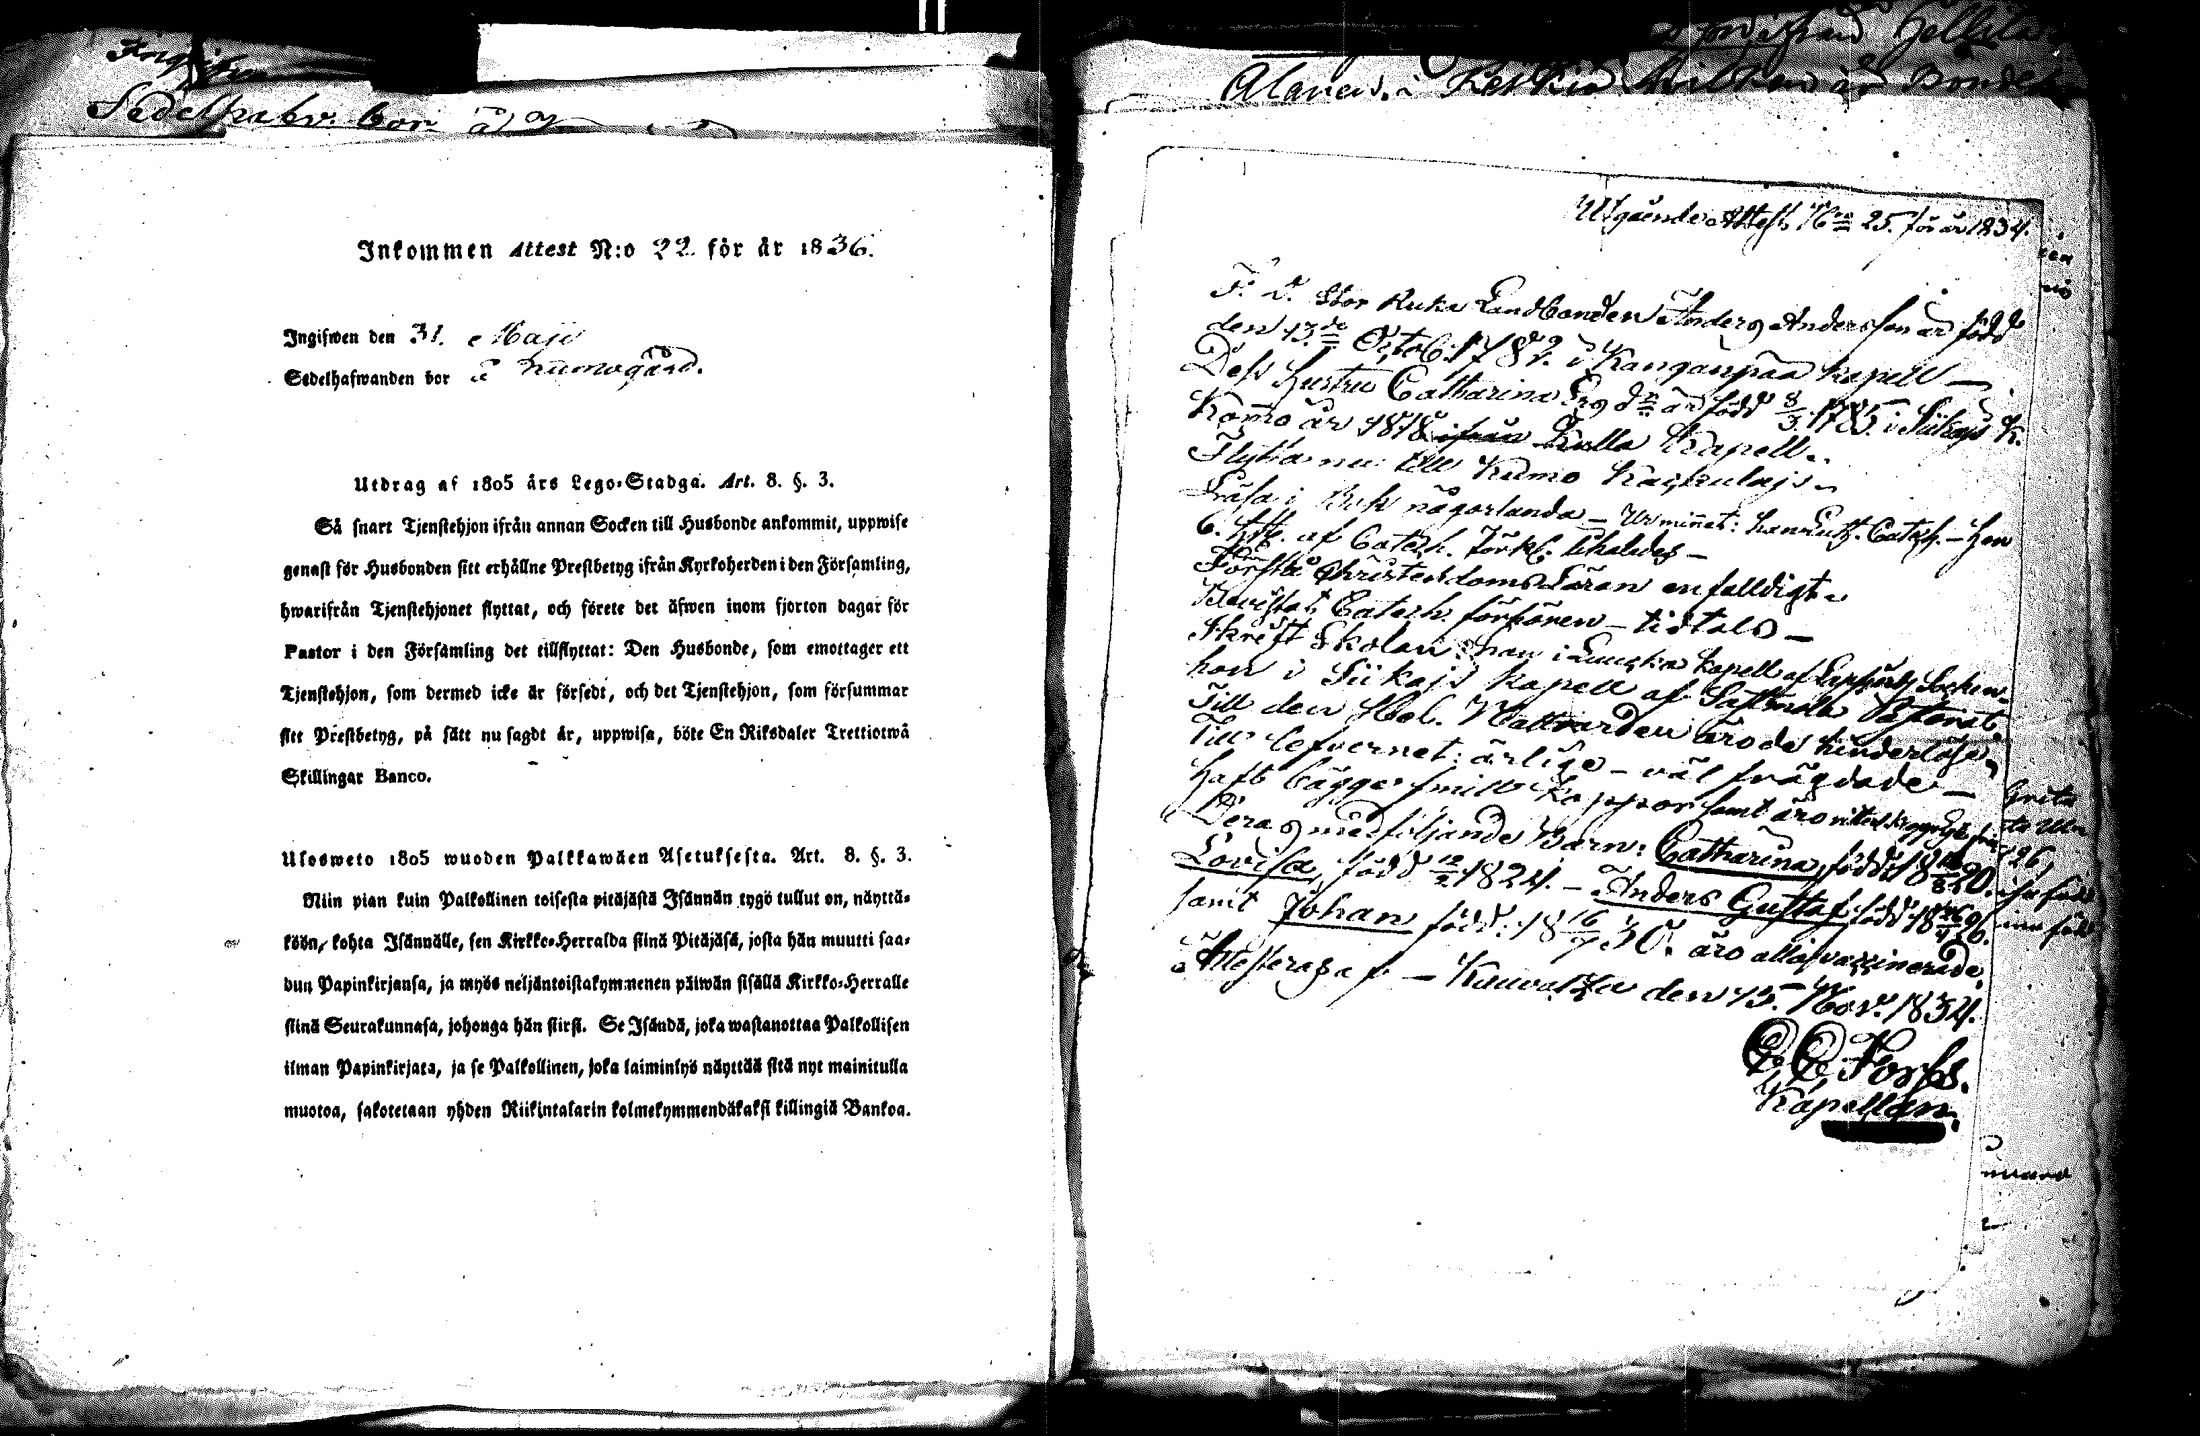 Sedelhafv. bor å
Inkommen Attest N:o 22 för år 1836.
Ingifwen den 31. Maji
Sedelhafwanden bor å Kumogård.
Utdrag af 1805 års Lego-Stadga. Art. 8. §. 3.
Så snart Tjenstehjon ifrån annan Socken till Husbonde ankommit, uppwise
genast för Husbonden sitt erhållne Prestbetyg ifrån Kyrkoherden i den Församling,
hwarifrån Tjenstehjonet flyttat, och förete det äfwen inom fjorton dagar för
Pastor i den Församling det tillflyttat: Den Husbonde, som emottager ett
Tjenstehjon, som dermed icke är försedt, och det Tjenstehjon, som försummar
sitt Prestbetyg, på sätt nu sagdt är, uppwisa, böte En Riksdaler Trettiotwå
Skillingar Banco.
Ulosweto 1805 wuoden Palkkawäen Asetuksesta. Art. 8. §. 3.
Niin pian kuin Palkollinen toisesta pitäjästä Isännän tygö tullut on, näyttä-
köön, kohta Isännälle, sen Kirkko-Herralda siinä Pitäjäsä, josta hän muutti saa-
dun Papinkirjansa, ja myös neljäntoistakymmenen päiwän sisällä Kirkko-Herralle
siinä Seurakunnasa, johonga hän siirsi. Se Isändä, joka wastanottaa Palkollisen
ilman Papinkirjata, ja se Palkollinen, joka laiminlyö näyttää sitä nyt mainitulla
muotoa, sakotetaan yhden Riikintalarin kolmekymmendäkaksi killingiä Bankoa.
Alaner i hvilken är Bonden
Utgående Attest No 25. för år 1834.
F. d. Stor Ruka Landbonden Anders Andersson är född
den 13de Octob. 1782. i Kanganpää kapell —
Dess hustru Catharina Ersdr är född 8/3 1785. i Siikajs K.
Komo år 1818 ifrån Kulla Kapell.
Flytta nu till Kumo Kyrkulajs.
Läsa i Bok någorlunda — Ur minnet: han Luth. Catech. — hon
6. htt. af Catech. förkl. tihaldes —
Förstå Christendoms Läran enfalldigt.
Bevistat Catech. förhören — tidtals —
Skrift Skolan: han i kapell af Socken
hon i Siikajs kapell af Pastorat.
Till den Hel. Nattvarden äro de hinderlöse,
Till lefvernet: ärlige — väl frägdade —
Haft bägge smitt koppor samt äro
Deras medföljande Barn: Catharina, född: 1820.
Lovisa, född 1824. — Anders Gustaf, född 1826.
samt Johan född: 18 16/7 30. äro alla vaccinerade.
Attesteras af — Kauvatza den 15. Nov. 1834.
Forss.
Kapellan.